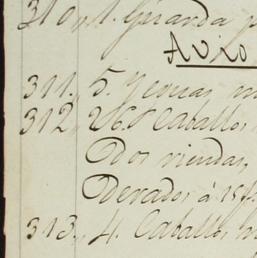 310,, 1. Guarda p
311,, 5. Yeguas m
312,, 26. Caballos
Dos riendas,
Derados á 15
313,, 4. Caballos